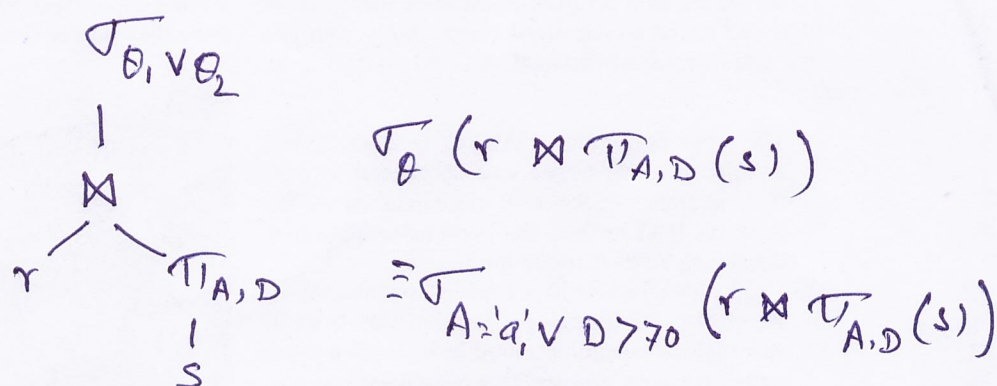 σ_{θ₁ ∨ θ₂}
⋈
r π_{A,D}
s
σ_θ (r ⋈ π_{A,D} (s))
≡ σ_{A='a' ∨ D>70} (r ⋈ π_{A,D} (s))